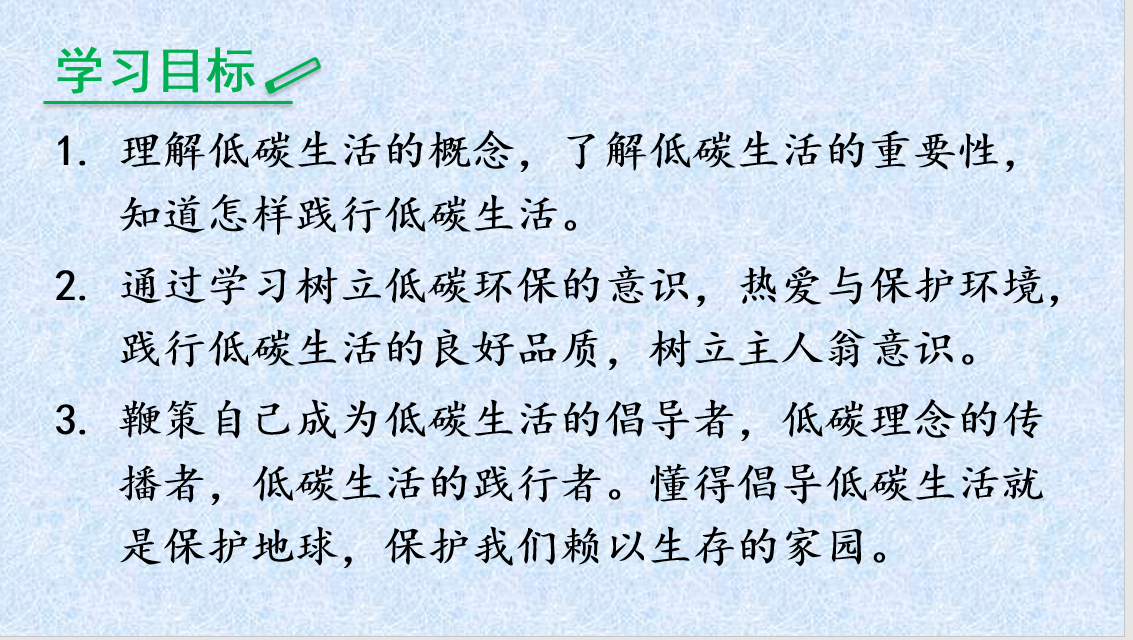 学习目标
1. 理解低碳生活的概念，了解低碳生活的重要性，
知道怎样践行低碳生活。
2. 通过学习树立低碳环保的意识，热爱与保护环境，
践行低碳生活的良好品质，树立主人翁意识。
3. 鞭策自己成为低碳生活的倡导者，低碳理念的传
播者，低碳生活的践行者。懂得倡导低碳生活就
是保护地球，保护我们赖以生存的家园。